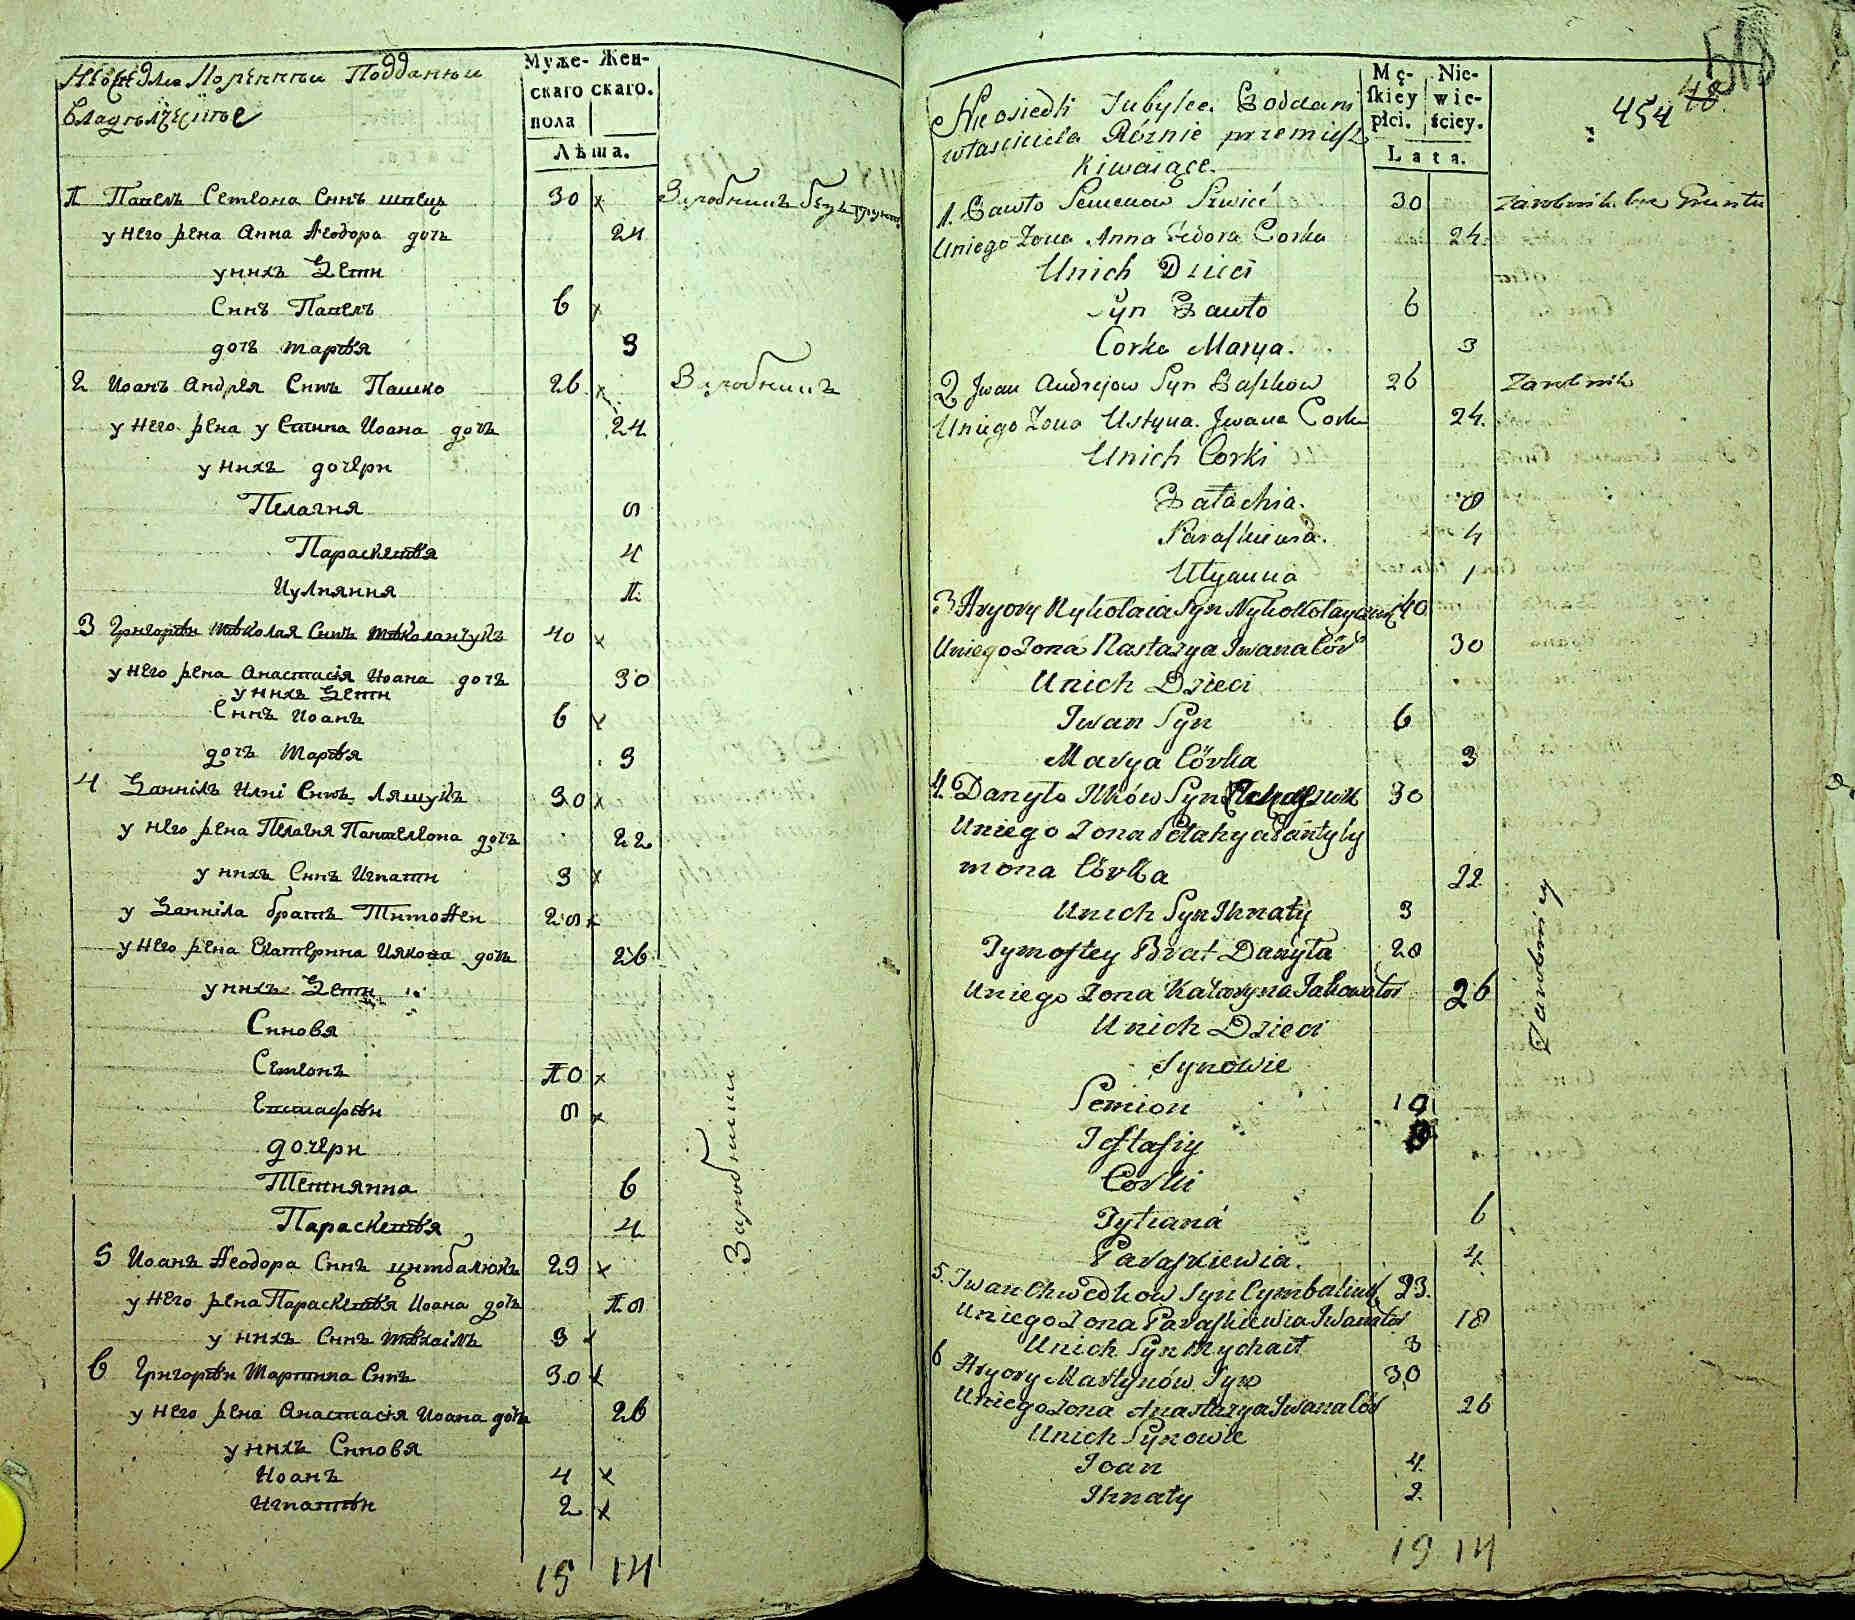 Подданныи
Владѣлческые
Муже-
скаго
пола
Жен-
скаго.
Лѣта.
1 Павелъ Семеона Синъ швець 30 x Заробникъ безъ грунт
у него жена Анна Ѳеодора дочь 24
у нихъ Дети
Синъ Павелъ 6 x
дочь Марія 3
2 Иоанъ Андрея Синъ Пашко 26 x Заробникъ
у него жена Устина Иоана дочь 24
у нихъ дочери
Пелагия 8
Параскевия 4
Иулиянна 1
3 Григорій Миколая Синъ Миколайчукъ 40 x
у него жена Анастасія Иоана дочь 30
у нихъ Дети
Синъ Иоанъ 6 x
дочь Марія 3
4 Даниілъ Илиі Синъ Ляшукъ 30 x
у него жена Пелагия Пантелеона дочь 22
у нихъ Синъ Игнатий 3 x
у Данніла братъ Тимоѳеи 28 x
у него жена Екатерина Иякова дочь 26
у нихъ Дети
Синовя
Семеонъ 10 x
Евстафій 8 x
дочери
Татиянна 6
Параскевия 4
Заробники
5 Иоанъ Ѳеодора Синъ цимбалюкъ 23 x
у него жена Параскевия Иоана дочь 18
у нихъ Синъ Михаілъ 3 x
6 Григорій Мартина Синъ 30 x
у него жена Анастасія Иоана дочь 26
у нихъ Синовя
Иоанъ 4 x
Игнатій 2 x
15 14
454 48
Nieosiedli Poddani
własciciela Róznie przemiesz
kiwaiące.
Mę-
skiey
płci.
Nie-
wie-
ściey.
Lata.
1. Pawło Semenow Szwieć 30 Zarobnik bez Gruntu
Uniego Zona Anna Fedora Corka 24
Unich Dzieci
Syn Pawło 6
Corka Marya. 3
2 Jwan Andrejow Syn Paszkow 26 Zarobnik
Uniego Zona Ustyna Jwana Corka 24.
Unich Corki
Pałachia. 8
Paraskiewia. 4
Ulyanna 1
3 Hryory Nykołaia Syn Nykołayczuk 40
Uniego Zona Nastazya Jwana Cór 30
Unich Dzieci
Iwan Syn 6
Marya Córka 3
4. Danyło Jlków Syn 30
Uniego Zona Pełahya Pantyly
mona Córka 22
Unich Syn Jhnaty 3
Tymoftey Brat Danyła 28
Uniego Zona Katarzyna Jakowa Cór 26
Unich Dzieci
Synowie
Semion 10
Jeftafiy 8
Corki
Tytianá 6
Paraskiewia. 4.
Zarobnicy
5. Iwan Chwedkow Syn Cymbaliuk 23.
Uniego Zona Paraskiewia Iwana Cór 18
Unich Syn Mychaił 3
6 Hryory Martynów Syn 30
Uniego Zona Anastazya Iwana Cór 26
Unich Synowie
Joan 4.
Jhnaty 2.
15 14